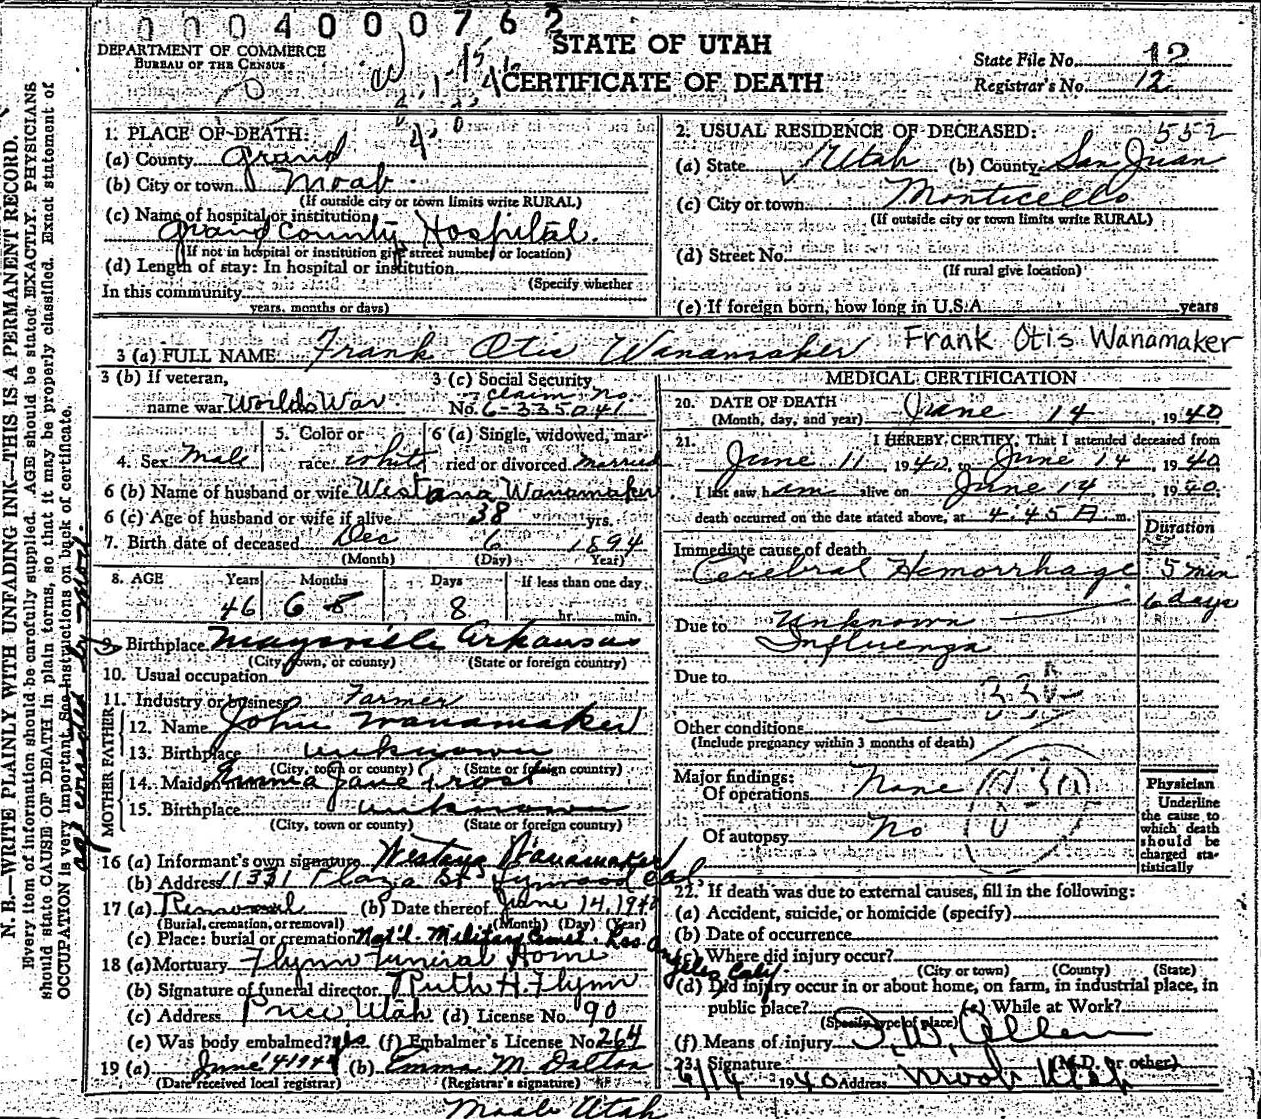 0004000762
DEPARTMENT OF COMMERCE
BUREAU OF THE CENSUS
STATE OF UTAH
CERTIFICATE OF DEATH
State File No. 12
Registrar's No. 12
N. B.—WRITE PLAINLY WITH UNFADING INK—THIS IS A PERMANENT RECORD.
Every item of information should be carefully supplied. AGE should be stated EXACTLY. PHYSICIANS
should state CAUSE OF DEATH in plain terms, so that it may be properly classified. Exact statement of
OCCUPATION is very important. See instructions on back of certificate.
1. PLACE OF DEATH:
(a) County Grand
(b) City or town Moab
(If outside city or town limits write RURAL)
(c) Name of hospital or institution
Grand County Hospital.
(If not in hospital or institution give street number or location)
(d) Length of stay: In hospital or institution
(Specify whether
In this community
years, months or days)
2. USUAL RESIDENCE OF DECEASED: 552
(a) State Utah (b) County San Juan
(c) City or town Monticello
(If outside city or town limits write RURAL)
(d) Street No.
(If rural give location)
(e) If foreign born, how long in U.S.A. years
3 (a) FULL NAME Frank Otis Wanamaker Frank Otis Wanamaker
3 (b) If veteran,
name war Worlds War
3 (c) Social Security
Claim No.
No. 6-335041
4. Sex Male
5. Color or race white
6 (a) Single, widowed, married or divorced married
6 (b) Name of husband or wife Westana Wanamaker
6 (c) Age of husband or wife if alive 38 yrs.
7. Birth date of deceased Dec 6 1894
(Month) (Day) Year)
8. AGE Years Months Days If less than one day
46 6 8 8 hr. min.
9. Birthplace Maysville Arkansas
(City, town, or county) (State or foreign country)
10. Usual occupation
11. Industry or business Farmer
FATHER
12. Name John Wanamaker
13. Birthplace unknown
(City, town or county) (State or foreign country)
MOTHER
14. Maiden name Emma Jane Frost
15. Birthplace unknown
(City, town or county) (State or foreign country)
16 (a) Informant's own signature Westana Wanamaker
(b) Address 11331 Plaza St Lynwood Cal
17 (a) Removal (b) Date thereof June 14, 1940
(Burial, cremation, or removal) (Month) (Day) (Year)
(c) Place: burial or cremation Nat'l. Military Cemet. Los Angeles Calif.
18 (a) Mortuary Flynn Funeral Home
(b) Signature of funeral director Ruth H. Flynn
(c) Address Price Utah (d) License No. 90
(e) Was body embalmed? yes (f) Embalmer's License No. 264
19 (a) June 14 1940 (b) Emma M. Dalton
(Date received local registrar) (Registrar's signature)
Moab Utah
MEDICAL CERTIFICATION
20. DATE OF DEATH
(Month, day, and year) June 14, 1940
21. I HEREBY CERTIFY, That I attended deceased from
June 11, 1940, to June 14, 1940
I last saw him alive on June 14 1940;
death occurred on the date stated above, at 4:45 A m.
Duration
Immediate cause of death
Cerebral Hemorrhage 5 min
6 days
Due to Unknown
Influenza
Due to
Other conditions
(Include pregnancy within 3 months of death)
Major findings:
Of operations None
Of autopsy No
Physician
Underline
the cause to
which death
should be
charged sta-
tistically
22. If death was due to external causes, fill in the following:
(a) Accident, suicide, or homicide (specify)
(b) Date of occurrence
(c) Where did injury occur?
(City or town) (County) (State)
(d) Did injury occur in or about home, on farm, in industrial place, in
public place? (e) While at Work?
(Specify type of place)
(f) Means of injury
23. Signature (M.D. or other)
6/14 1940 Address Moab Utah